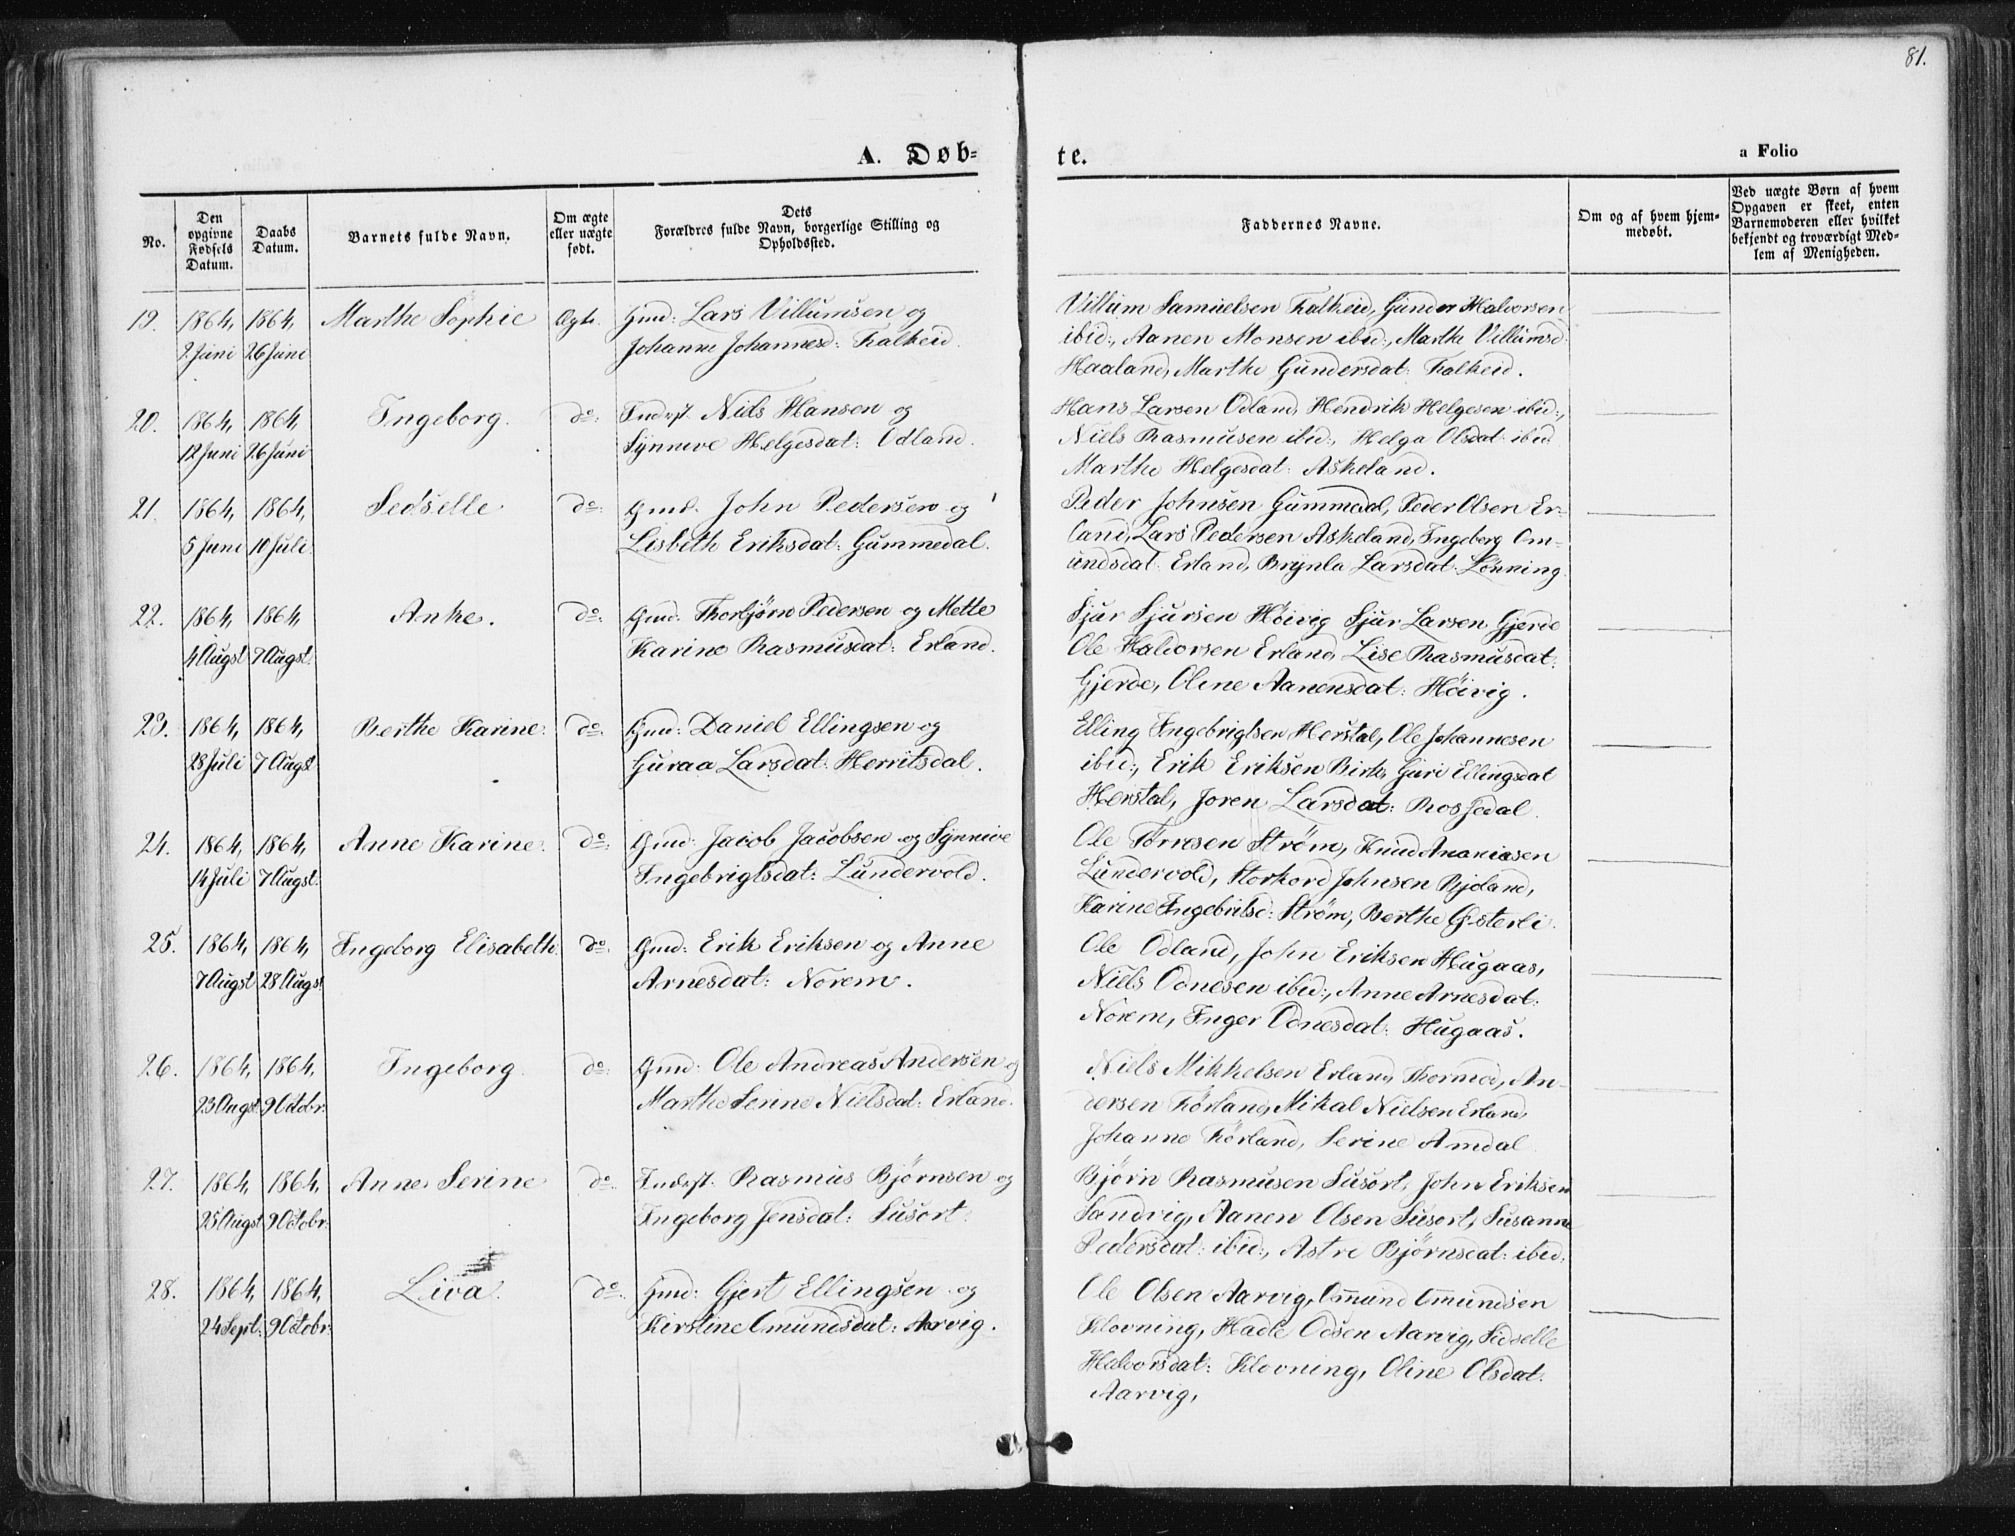 81.
A. Døb-
te.
a Folio
No.
Den opgivne Fødsels Datum.
Daabs Datum.
Barnets fulde Navn.
Om ægte eller uægte født.
Dets Forældres fulde Navn, borgerlige Stilling og Opholdssted.
Faddernes Navne.
Om og af hvem hjem-
medøbt.
Ved uægte Børn af hvem
Opgaven er skeet, enten
Barnemoderen eller hvilket
bekjendt og troværdigt Med-
lem af Menigheden.
19. 1864, 1864, Marthe Sophie Ægte. Gmd: Lars Villumsen og
2 Juni 26 Juni Johanne Johannesd: Falkeid.
Villum Samuelsen Falkeid, Gunder Halvorsen
ibid:, Aanen Monsen ibid:, Marthe Villumsd:
Haaland, Marthe Gundersdat: Falkeid.
20. 1864, 1864, Ingeborg. do: Inderst. Niels Hansen og
12 Juni 26 Juni Synneve Helgesdat: Odland.
Hans Larsen Odland, Hendrik Helgesen ibid:,
Niels Rasmusen ibid:, Helga Olsdat: ibid
Marthe Helgesdat: Askeland.
21. 1864, 1864, Sedselle do: Gmd. John Pedersen og
5 Juni 10 Juli Lisbeth Eriksdat: Gummedal.
Peder Johnsen Gummedal, Peder Olsen Er-
land, Lars Pedersen Askeland, Ingeborg Om-
undsdat: Erland, Brynla Larsdat: Lønning
22. 1864, 1864, Anke. do: Gmd: Thorbjørn Pedersen og Mette
4 Augst 7 Augst: Karine Rasmusdat: Erland.
Sjur Sjursen Høivig Sjur Larsen Gjerde
Ole Halvorsen Erland, Lise Rasmusdat:
Gjerde, Oline Aanensdat: Høivig.
23. 1864, 1864, Berthe Karine. do: Gmd: Daniel Ellingsen og
28 Juli 7 Augst Guraa Larsdat: Herritsdal.
Elling Ingebrigtsen Herstal, Ole Johannesen
ibid:, Erik Eriksen Birk, Guri Ellingsdat
Herstal, Joren Larsdat: Rossedal.
24. 1864, 1864, Anne Karine. do: Gmd: Jacob Jacobsen og Synneve
14 Juli 7 Augst: Ingebrigtsdat: Lundervold.
Ole Torresen Strøm, Knud Ananiasen
Lundervold, Storkord Johnsen Bjoland,
Karine Ingebritsd: Strøm, Berthe Østerli.
25. 1864, 1864, Ingeborg Elisabeth. do: Gmd: Erik Eriksen og Anne
7 Augst 28 Augst Arnesdat: Norem.
Ole Odland, John Eriksen Hugaas,
Niels Odnesen ibid:, Anne Arnesdat:
Norem, Inger Odnesdat: Hugaas.
26. 1864, 1864, Ingeborg. do: Gmd: Ole Andreas Andersen og
23 Augst 9 Octobr: Marthe Serine Nielsdat: Erland.
Niels Mikkelsen Erland, Thormod, An-
dersen Førland, Mikal Nielsen Erland,
Johanne Førland, Serine Amdal
27. 1864, 1864, Anne Serine do: Inderst. Rasmus Bjørnsen og
25 Augst 9 Octobr: Ingeborg Jensdat: Susort.
Bjørn Rasmusen Susort, John Eriksen
Sandvig, Aanen Olsen Susort, Susanne
Pedersdat: ibid:, Astri Bjørnsdat: ibid:
28. 1864, 1864, Liva. do: Gmd: Gjert Ellingsen og
24 Sept: 9 Octobr: Kirstine Omundsdat: Aarvig.
Ole Olsen Aarvig, Omund Omundsen
Klovning, Hadle Odsen Aarvig, Sidselle
Halvorsdat: Klovning, Oline Olsdat:
Aarvig,